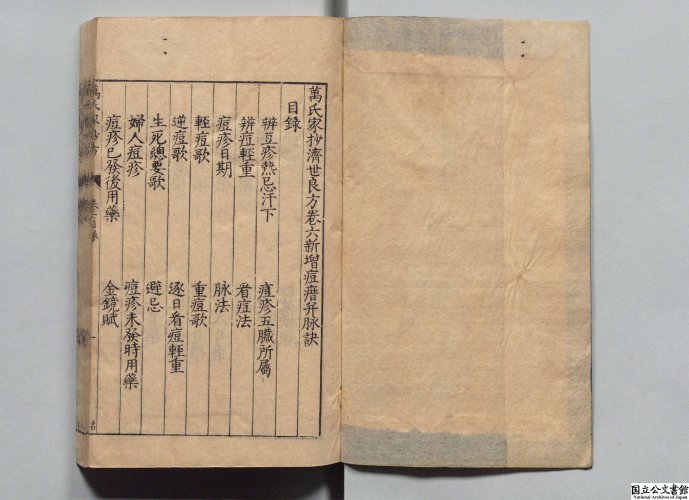 萬氏家抄濟世良方卷六新增痘疹并脉訣
目錄
辨豆疹熱忌汗下 痘疹五臟所屬
辨痘輕重 看痘法
痘疹日期 脉法
輕痘歌 重痘歌
逆痘歌 逐日看痘輕重
生死總要歌 避忌
婦人痘疹 痘疹未發時用藥
痘疹已發後用藥 金鏡賦
萬氏家抄方 卷六目錄 一
国立公文書館
National Archives of Japan